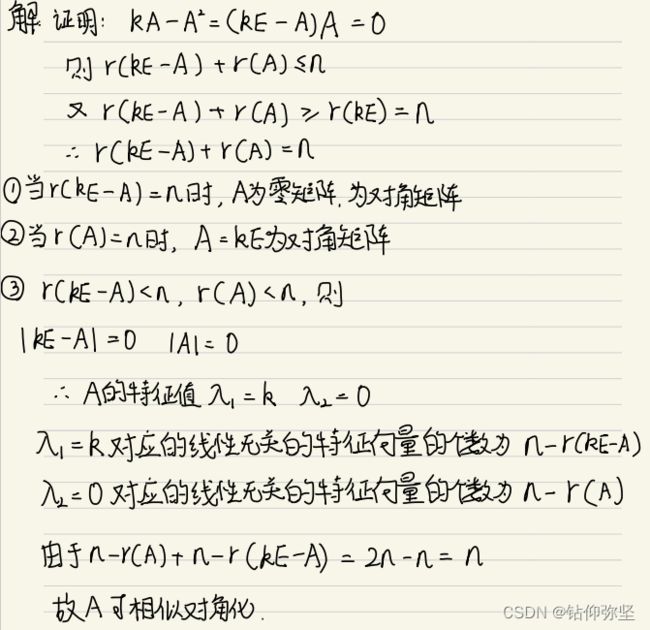 解 证明: kA-A²=(kE-A)A=0
则 r(kE-A)+r(A)≤n
又 r(kE-A)+r(A)≥r(kE)=n
∴ r(kE-A)+r(A)=n
①当r(kE-A)=n时, A为零矩阵, 为对角矩阵
②当r(A)=n时, A=kE为对角矩阵
③ r(kE-A)<n, r(A)<n, 则
|kE-A|=0 |A|=0
∴ A的特征值 λ₁=k λ₂=0
λ₁=k对应的线性无关的特征向量的个数为 n-r(kE-A)
λ₂=0 对应的线性无关的特征向量的个数为 n-r(A)
由于n-r(A)+n-r(kE-A)=2n-n=n
故A可相似对角化.
CSDN @钻仰弥坚